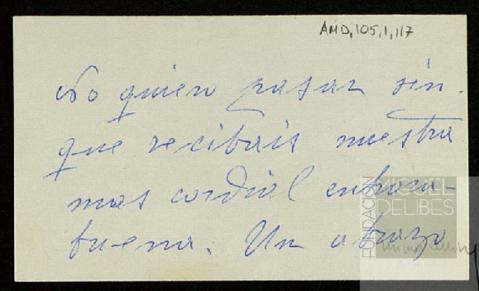 AMD,105,1,117
No quiero pasar sin
que recibais nuestra
mas cordial enhora-
buena. Un abrazo
FUNDACIÓN
MIGUEL
DELIBES